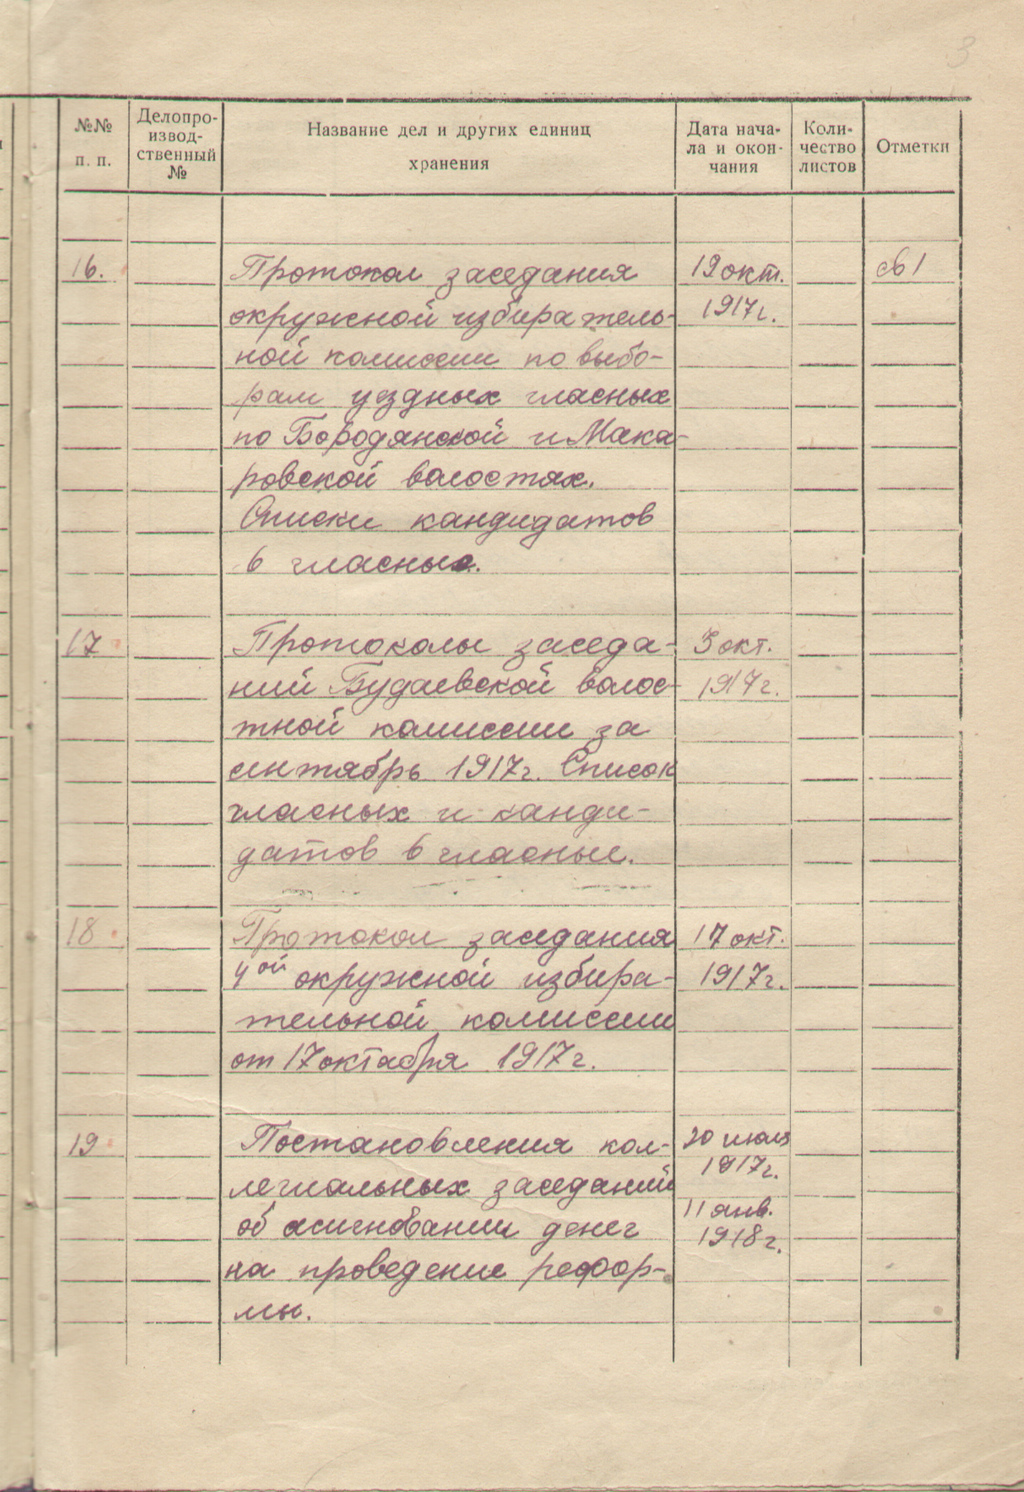 3
№№ п. п.
Делопро-
извод-
ственный
№
Название дел и других единиц
хранения
Дата нача-
ла и окон-
чания
Коли-
чество
листов
Отметки
16. Протокол заседания 19 окт.
окружной избиратель- 1917г.
ной комиссии по выбо-
рам уездных гласных
по Бородянской и Мака-
ровской волостях.
Списки кандидатов
в гласные.
17 Протоколы заседа- 3 окт.
ний Будаевской волос- 1917г.
тной комиссии за
сентябрь 1917г. Список
гласных и канди-
датов в гласные.
18. Протокол заседания 17 окт.
4ой окружной избира- 1917г.
тельной комиссии
от 17 октября 1917г.
19 Постановления кол- 20 июля
легиальных заседаний 1917г.
об асигновании денег 11 янв.
на проведение рефор- 1918г.
мы.